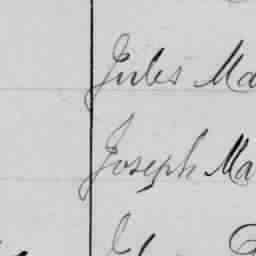 Jules Ma
Joseph Ma